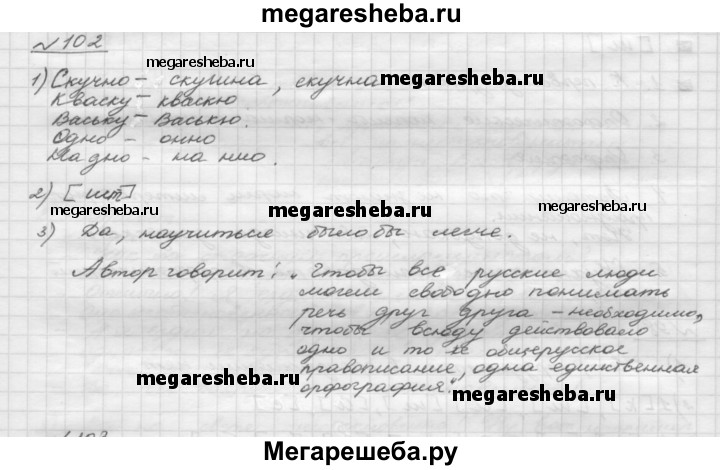 megaresheba.ru
№102
megaresheba.ru
1) Скучно - скушна, скучна
megaresheba.ru
Кваску - кваскю.
Ваську - Васькю.
Одно - онно
На дно - на нно.
2) [шт]
megaresheba.ru
megaresheba.ru
megaresheba.ru
3) Да, научиться было бы легче.
Автор говорит: "Чтобы все русские люди
могли свободно понимать
речь друг друга - необходимо,
чтобы всюду действовало
одно и то же общерусское
правописание, одна единственная
орфография."
megaresheba.ru
megaresheba.ru
Мегарешеба.ру